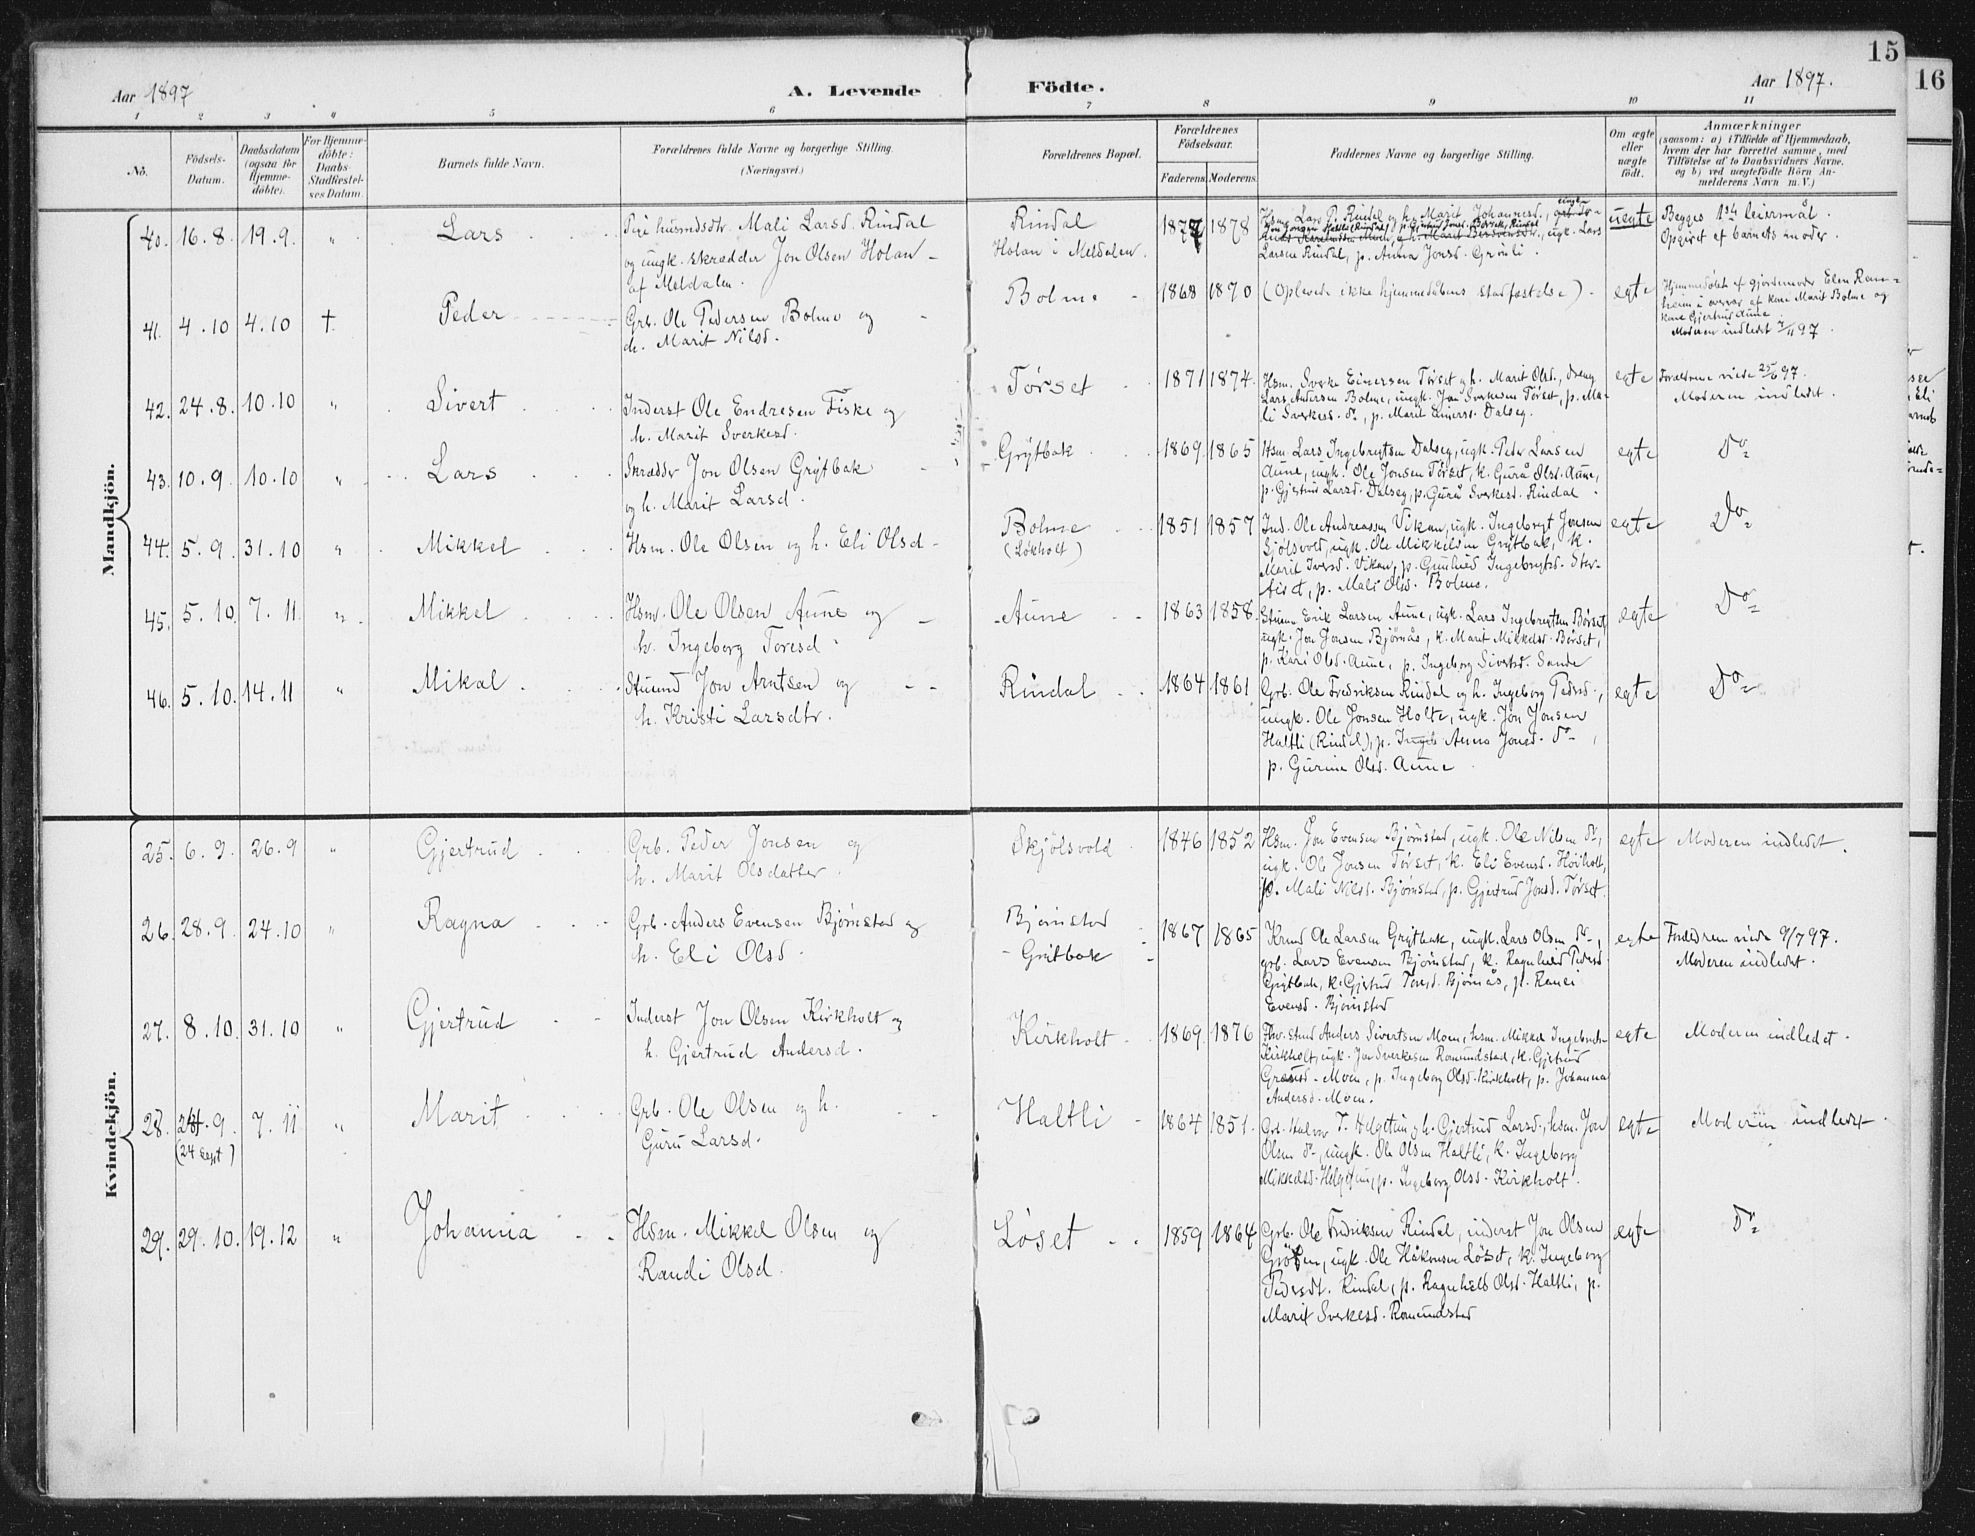 15
16
Aar 1897
A. Levende Födte.
Aar 1897.
1 2 3 4 5 6 7 8 9 10 11
No.
Födsels-
Datum.
Daabsdatum
(ogsaa for
Hjemme-
döbte).
For Hjemme-
döbte:
Daabs-
Stadfæstel-
ses Datum.
Barnets fulde Navn.
Forældrenes fulde Navne og borgerlige Stilling.
(Næringsvei.)
Forældrenes Bopæl.
Forældrenes
Födselsaar.
Faderens Moderens
Faddernes Navne og borgerlige Stilling.
Om ægte
eller
uægte
födt.
Anmærkninger
(saasom: a) i Tilfælde af Hjemmedaab,
hvem der har forrettet samme, med
Tilföielse af to Daabsvidners Navne,
og b) ved uægtefödte Börn An-
melderens Navn m. V.)
Mandkjön.
40. 16.8. 19.9. " Lars
Pige husmdsdtr. Mali Larsd. Rindal
og ungk. skrædder Jon Olsen Holan
af Meldalen.
Rindal
Holan i Meldalen.
1877 1878
Hsm. Lars P. Rindal og h. Marit Johannesd.,
ugk. Lars
Larsen Rindal, p. Anna Jonsd. Grönli.
uegte
Begges 1ste leiermål.
Opgivet af barnets moder.
41. 4.10 4.10 † Peder
Grb. Ole Pedersen Bolme og
h. Marit Nilsd.
Bolme
1868 1870
(Oplevede ikke hjemmedåbens stadfæstelse)
egte
Hjemmedøbt af gjordemoder Elen Ram-
heim i overvær af kone Marit Bolme og
kone Gjertrud Aune.
Moderen indledet 7/11 97.
42. 24.8. 10.10 " Sivert
Inderst Ole Endresen Fiske og
h. Marit Sverkesd.
Törset
1871 1874
Hsm. Sverke Einersen Törset og h. Marit Olsd., dreng
Lars Andersen Bolme, ungk. Jon Sverkesen Törset, p. Ma-
li Sverkesd. do, p. Marit Einersd. Dalseg.
egte
Forældrene viede 25/6 97.
Moderen indledet.
43. 10.9. 10.10 " Lars
Skrædder Jon Olsen Grÿtbak
og h. Marit Larsd.
Grÿtbak
1869 1865
Hsm. Lars Ingebrigtsen Dalseg, ugk. Peder Larsen
Aune, ungk. Ole Jonsen Törset, k. Gurå Olsd. Aune,
p. Gjertrud Larsd. Dalseg, p. Gurå Sverkesd. Rindal.
egte
Do
44. 5.9. 31.10 " Mikkel
Hsm. Ole Olsen og h. Eli Olsd.
Bolme
(Løkholt)
1851 1857
Ind. Ole Andreassen Vikan, ugk. Ingebrigt Jonsen
Sjölsvold, ugk. Ole Mikkelsen Grÿtbak, k.
Marit Iversd. Vikan, p. Gunhild Ingebrigtsd. Stor-
, p. Mali Olsd. Bolme.
egte
Do
45. 5.10. 7.11 " Mikkel
Hsm. Ole Olsen Aune og
h. Ingeborg Toresd.
Aune
1863 1858
Erik Larsen Aune, ugk. Lars Ingebrigtsen Börset,
ugk. Jon Jonsen Bjørnås, k. Marit Mikkelsd. Börset,
p. Kari Olsd. Aune, p. Ingeborg Sivertsd. Sande
egte
Do
46. 5.10. 14.11 " Mikal
Jon Arntsen og
h. Kristi Larsdtr.
Rindal
1864 1861
Grb. Ole Fredriksen Rindal og h. Ingeborg Pedersd.,
ungk. Ole Jonsen Holte, ugk. Jon Jonsen
Haltli (Rindal), p. Anna Jonsd. do,
p. Gurine Olsd. Aune
egte
Do
Kvindekjön.
25. 6.9. 26.9 " Gjertrud
Grb. Peder Jonsen og
h. Marit Olsdatter.
Skjölsvold
1846 1852
Hsm. Jon Evensen Bjørnstad, ugk. Ole Nilsen do,
ugk. Ole Jonsen Törset, k. Eli Evensd. Höiholt,
p. Mali Nilsd. Bjørnstad, p. Gjertrud Jonsd. Törset.
egte
Moderen indledet.
26. 28.9. 24.10 " Ragna
Grb. Anders Evensen Bjørnstad og
h. Eli Olsd.
Bjørnstad
- Grÿtbak
1867 1865
Ole Larsen Grÿtbak, ungk. Lars Olsen do,
grb. Lars Evensen Bjørnstad, k. Ragnhild Pedersd.
Grÿtbak, k. Gjertrud Toresd. Bjørnås, p. Ranei
Evensd. Bjørnstad
egte
Forældrene viede 9/7 97.
Moderen indledet.
27. 8.10. 31.10 " Gjertrud
Inderst Jon Olsen Kirkholt og
h. Gjertrud Andersd.
Kirkholt
1869 1876
Anders Sivertsen Moen, hsm. Mikkel Ingebrigts.
Kirkholt, ugk. Jon Sverkesen Romundstad, k. Gjertrud
Moen, p. Ingeborg Olsd. Kirkholt, p. Johanna
Andersd. Moen.
egte
Moderen indledet.
28. 24.9. 7.11 " Marit
(24 sept)
Grb. Ole Olsen og h.
Guru Larsd.
Haltli
1864 1851.
Grb. Halvor T. Helgetun og h. Gjertrud Larsd., hsm. Jon
Olsen do, ungk. Ole Olsen Haltli, k. Ingeborg
Mikkelsd. Helgetun, p. Ingeborg Olsd. Kirkholt.
egte
Moderen indledet.
29. 29.10. 19.12 " Johanna
Hsm. Mikkel Olsen og
Randi Olsd.
Löset
1859 1864
Grb. Ole Fredriksen Rindal, inderst Jon Olsen
, ugk. Ole Håkonsen Löset, k. Ingeborg
Pedersdt. Rindal, p. Ragnhild Olsd. Haltli, p.
Marit Sverkesd. Romundstad
egte
Do